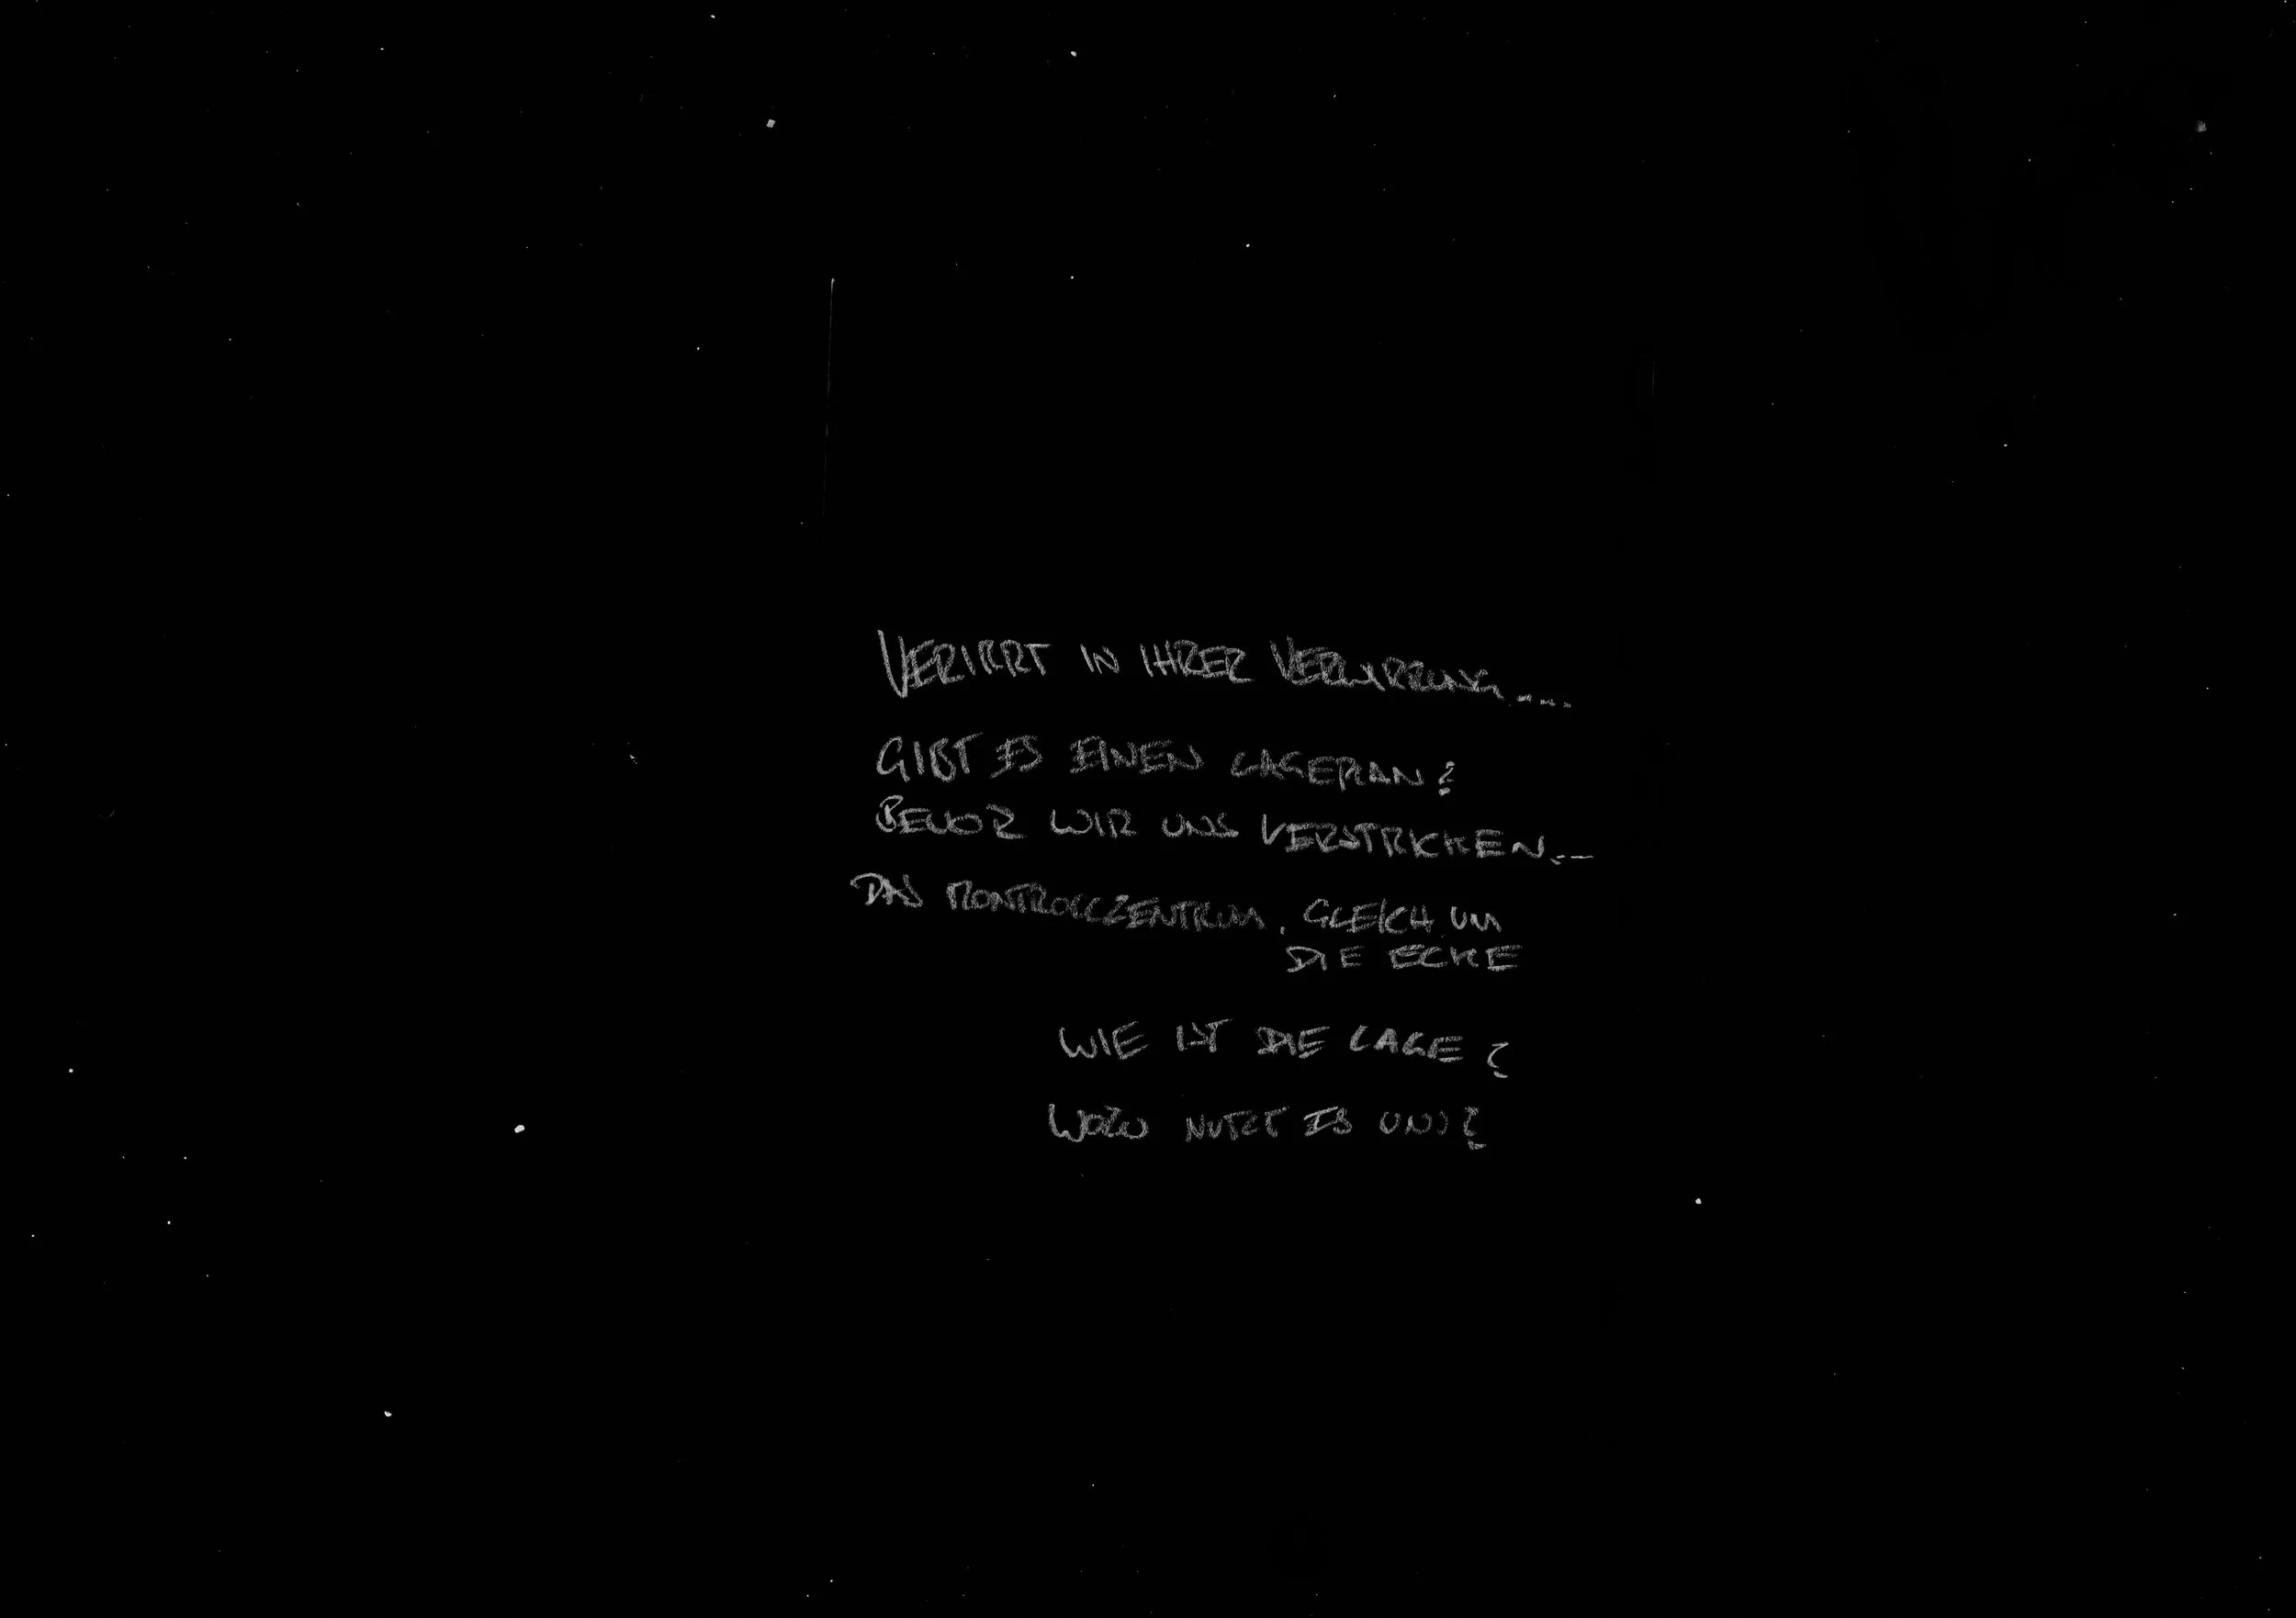 VERIRRT IN IHRER VERWIRRUNG....
GIBT ES EINEN LAGEPLAN?
BEVOR WIR UNS VERSTRICKEN...
DAS KONTROLLZENTRUM, GLEICH UM
DIE ECKE
WIE IST DIE LAGE?
WOZU NUTZT ES UNS?